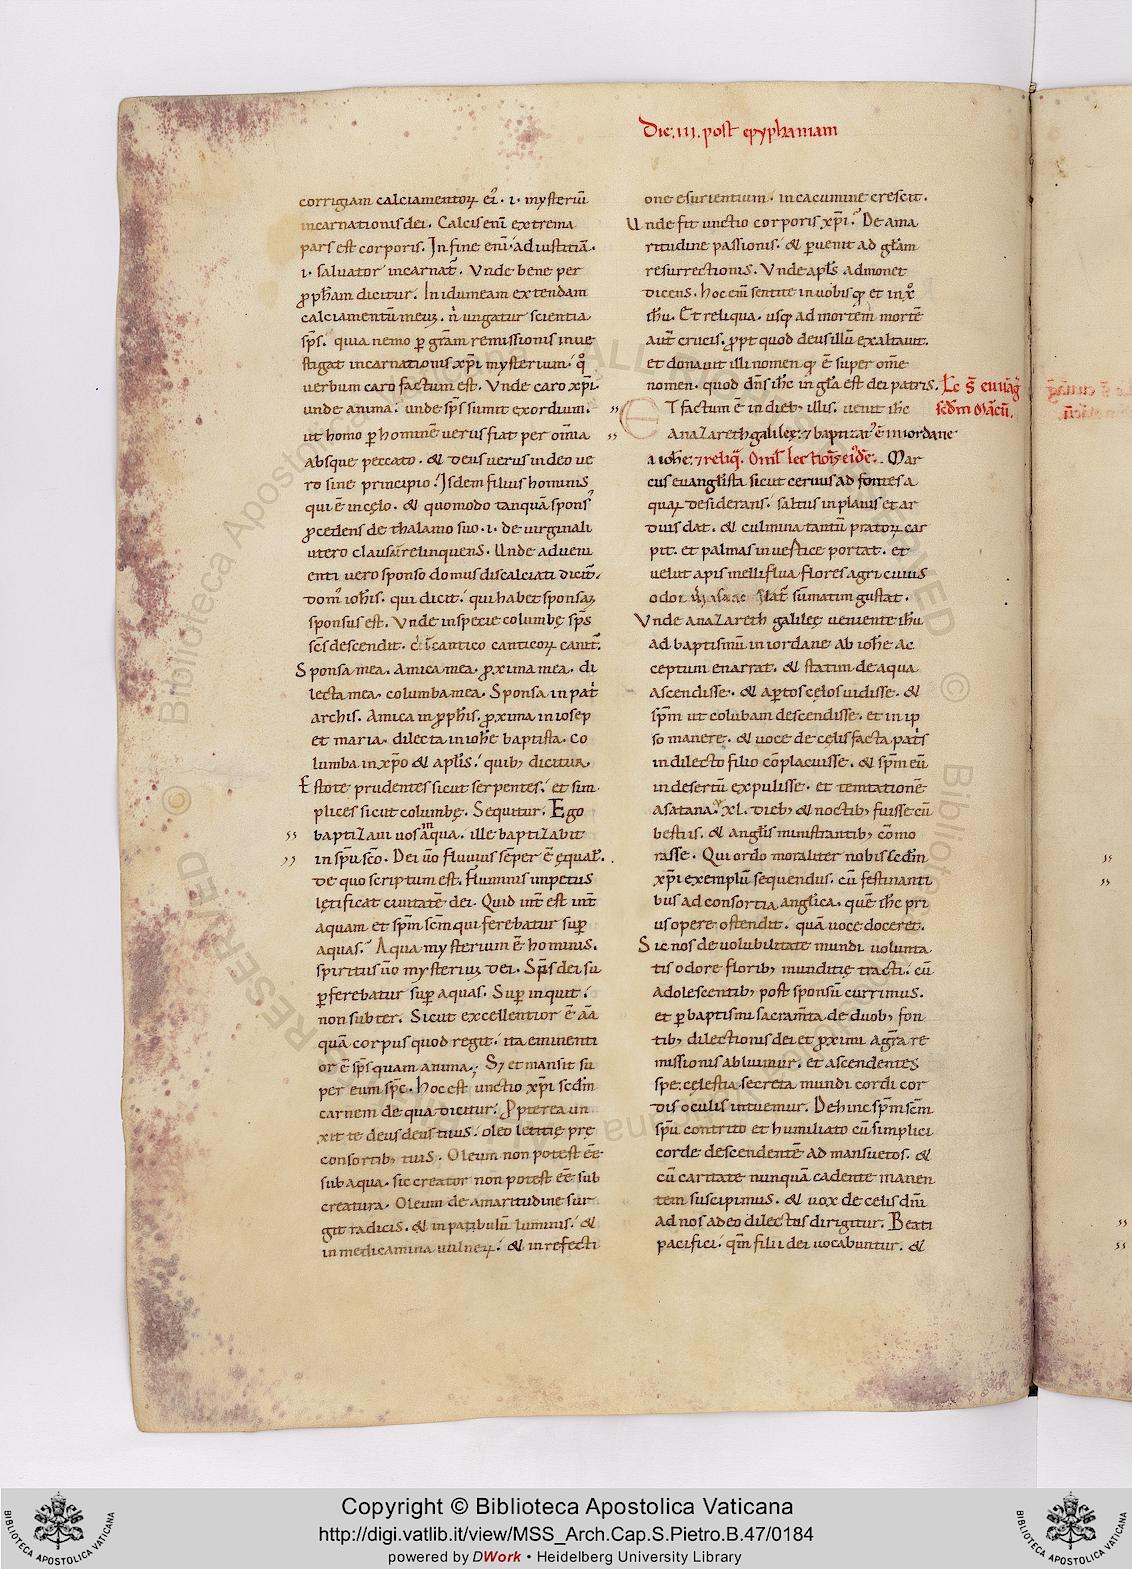 Die .iii. post epyphaniam
corrigiam calciamentoꝝ ei᾽. i. mysteriū
incarnationis dei. Calcis enī extrema
pars est corporis. In fine enī ad iustitiā.
i. saluator incarnat᾽. Vnde bene per
ꝓph̄am dicitur. In idumeam extendam
calciamentū meuꝫ. n̄ ungatur scientia
sp̄s. quia nemo ꝑ grām remissionis inue
stigat incarnationis xp̄i mysterium. qͦ
uerbum caro factum est. Vnde caro xp̄i.
unde anima. unde sp̄s sumit exordium.
ut homo ꝑ hominē uerus fiat per omīa
absque peccato. & deus uerus in deo ue
ro sine principio. Isdem filius hominis
qui ē in cęlo. & quomodo tanquā spons᾽
ꝓcedens de thalamo suo. i. de virginali
utero clausā relinquens. Unde adueni
enti uero sponso domus discalciati dicit᾽.
Dom᾽ ioh̄is. qui dicit. qui habet sponsaꝫ
sponsus est. Vnde in specie columbę sp̄s
sc̄s descendit. cantico canticoꝝ canit᾽.
Sponsa mea. Amica mea. ꝓxima mea. di
lecta mea. columba mea. Sponsa in pat
archis. Amica in ꝓph̄is. ꝓxima in iosep
et maria. dilecta in ioh̄e baptista. co
lumba in xp̄o & apl̄is. quibꝫ dicitur.
Estote prudentes sicut serpentes. et sim
plices sicut columbę. Sequitur. Ego
baptizaui uos in aqua. ille baptizabit
in sp̄u sc̄o. Dei ūo fluuius sēper ē ęqual᾽.
de quo scriptum est. Fluminis impetus
lętificat ciuitatē dei. Quid int̄ est int̄
aquam et sp̄m sc̄m qui ferebatur suꝑ
aquas. Aqua mysterium ē hominis.
spiritus ūo mysteriuꝫ dei. Sp̄s dei su
ꝑferebatur suꝑ aquas. Suꝑ inquit.
non subter. Sicut excellentior ē aīa
quā corpus quod regit. ita eminenti
or ē sp̄s quam anima. Sꝫ et mansit su
per eum sp̄c. hoc est unctio xp̄i scdm̄
carnem de qua dicitur. Ꝓpterea un
xit te deus deus tuus. oleo letitię prę
consortibꝫ tuis. Oleum non potest eē
sub aqua. sic creator non potest eē sub
creatura. Oleum de amaritudine sur
git radicis. & in patibulū luminis. &
in medicamina uulneꝝ. & in refecti
one esurientium. in cacumine crescit.
Unde fit unctio corporis xp̄i. De ama
ritudine passionis. & ꝑuenit ad glām
resurrectionis. Vnde apl̄s admonet
dicens. hoc enī sentite in uobis qͩ et in xͦ
ih̄u. Et reliqua. usqꝫ ad mortem mortē
aut̄ crucis. ꝓpt quod deus illū exaltauit.
et donauit illi nomen qͩ ē super om̄e
nomen. quod dn̄s ih̄c in glā est dei patris.
Le S̄ euuāg̅
scdm̄ Marcū.
ET factum ē in diebꝫ illis. uenit ih̄c
a nazareth galileę. ⁊ baptizat᾽ ē in iordane
a ioh̄e. ⁊ reliq̄. Omīl lectioīs eiᵭē. Mar
cus euanglista sicut ceruus ad fontes a
quaꝝ desiderans. saltus in planis et ar
duis dat. & culmina tantū pratoꝝ car
pit. et palmas in uertice portat. et
uelut apis melliflua flores agri cuius
odor summatim gustat.
Vnde a nazareth galileę ueniente ih̄u
ad baptismū in iordane ab ioh̄e ac
ceptum enarrat. & statim de aqua
ascendisse. & aꝑtos cęlos uidisse. &
sp̄m ut colūbam descendisse. et in ip
so manere. & uoce de cęlis facta pat̄s
in dilecto filio cōplacuisse. & sp̄m eū
in desertū expulisse. et temtationē
a satana. xl. diebꝫ & noctibꝫ fuisse cū
bestiis. & anglīs ministrantibꝫ cōmo
rasse. Qui ordo moraliter nobis scdm̄
xp̄i exemplū sequendus. cū festinanti
bus ad consortia anglica. quē ih̄c pri
us opere ostendit. quā uoce doceret.
Sic nos de uolubilitate mundi uolunta
tis odore floribꝫ munditię tracti. cū
adolescentibꝫ post sponsū currimus.
et ꝑ baptismi sacram̄ta de duobꝫ fon
tibꝫ dilectionis dei et ꝓximi a grā re
missionis abluimur. et ascendentes
spe. celestia secreta mundi cordi cor
dis oculis intuemur. Dehinc sp̄m sc̄m
sp̄u contrito et humiliato cū simplici
corde descendentē ad mansuetos. &
cū caritate nunquā cadente manen
tem suscipimus. & uox de celis dn̄i
ad nos adeo dilectos dirigitur. Beati
pacifici. qm̄ filii dei uocabuntur. &
Copyright © Biblioteca Apostolica Vaticana
http://digi.vatlib.it/view/MSS_Arch.Cap.S.Pietro.B.47/0184
powered by DWork • Heidelberg University Library
BIBLIOTECA APOSTOLICA VATICANA
BIBLIOTECA APOSTOLICA VATICANA